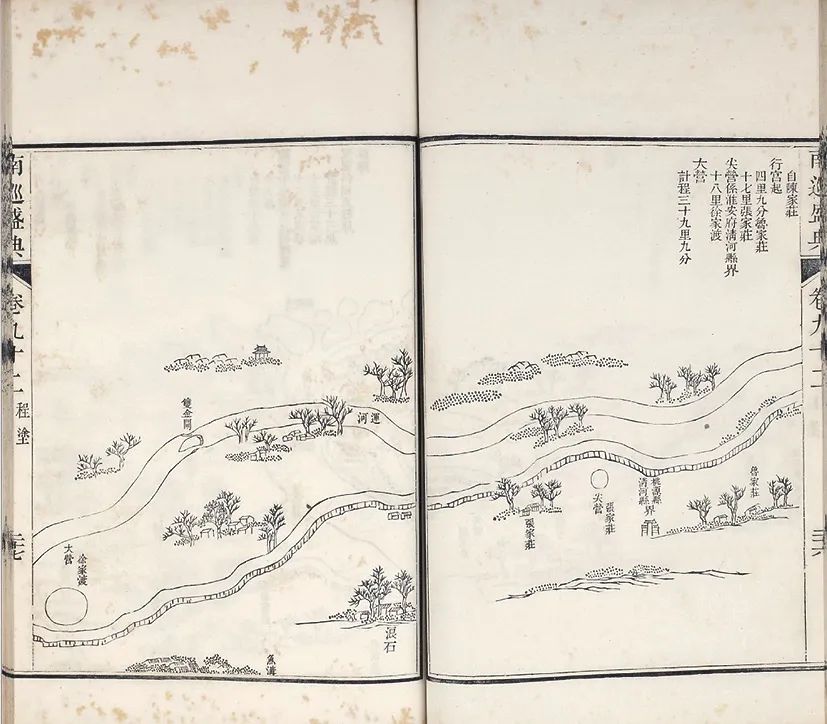 南巡盛典
卷九十二
自陳家莊
行宫起
四里九分魯家莊
十七里張家莊
尖營係淮安府清河縣界
十八里徐家渡
大營
計程三十九里九分
魯家莊
桃源縣
清河縣
界
張家莊
尖營
張家莊
運河
浪石
魚溝
雙金閘
徐家渡
大營
南巡盛典
卷九十二
程塗